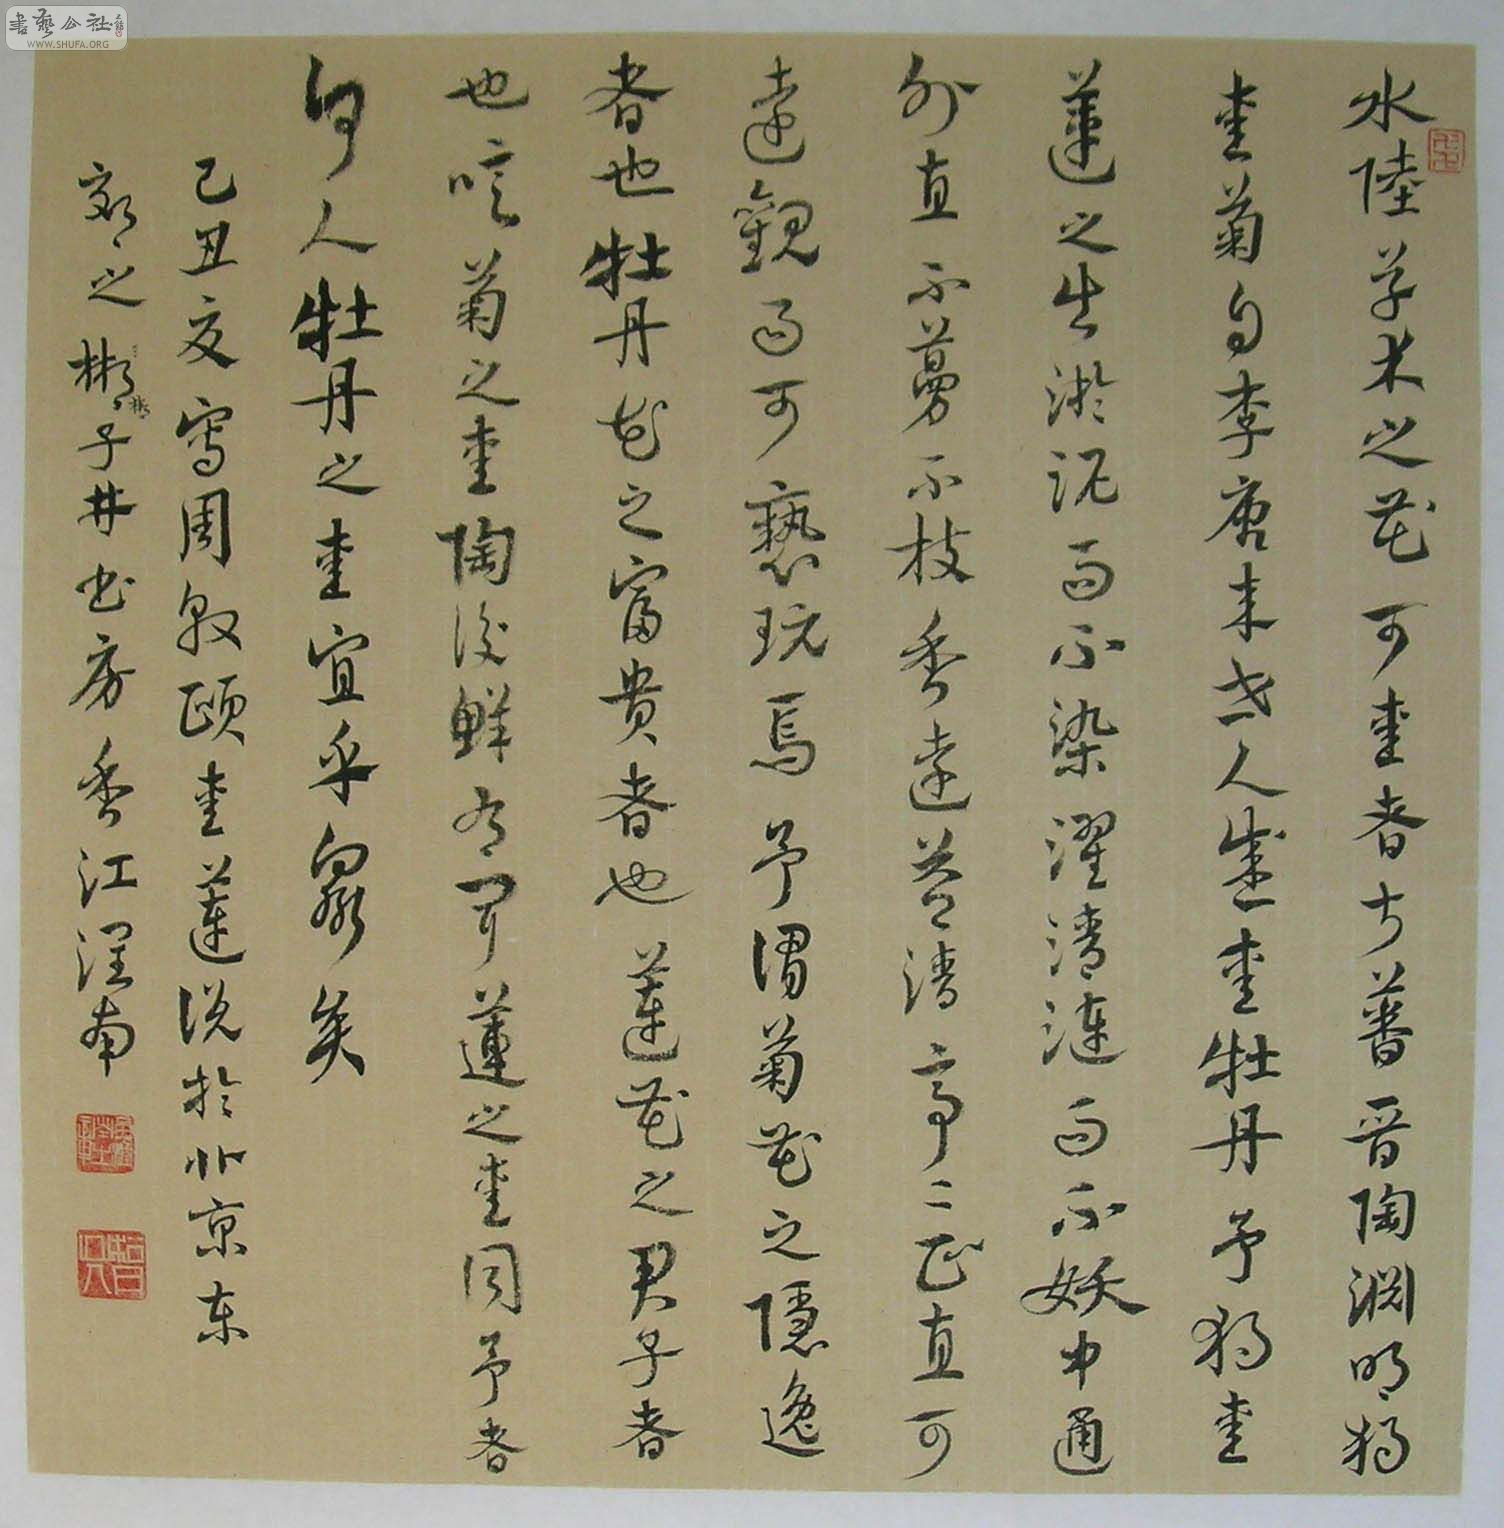 書藝公社
WWW.SHUFA.ORG
水陸草木之花可愛者甚蕃晉陶淵明獨
愛菊自李唐来世人盛愛牡丹予獨愛
蓮之出淤泥而不染濯清漣而不妖中通
外直不蔓不枝香遠益清亭〻正直可
遠觀而可褻玩焉予謂菊花之隱逸
者也牡丹花之富貴者也蓮花之君子者
也噫菊之愛陶後鮮有聞蓮之愛同予者
何人牡丹之愛宜乎衆矣
己丑夏寫周敦頤愛蓮说於北京东
郊之彬子井书房香江潤南